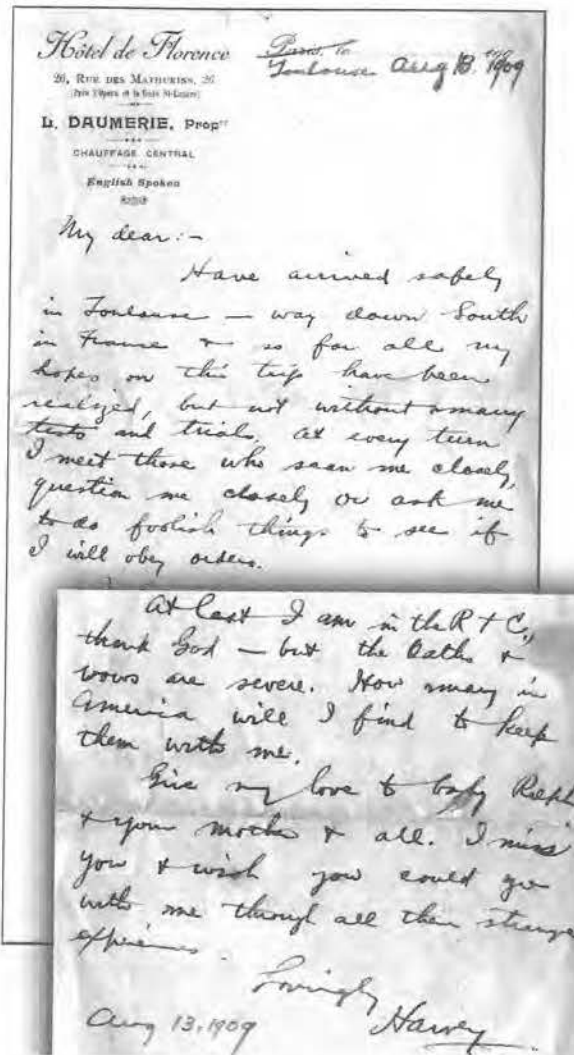 Hôtel de Florence
26, RUE DES MATHURINS, 26
(Près l'Opéra et la Gare St-Lazare)
L. DAUMERIE, Propre
CHAUFFAGE CENTRAL
English Spoken
Paris, le
Toulouse Aug 13. 1909
My dear:-
Have arrived safely
in Toulouse - way down South
in France & so far all my
hopes on this trip have been
realized, but not without many
tests and trials. At every turn
I meet those who scan me closely,
question me closely or ask me
to do foolish things to see if
I will obey orders.
At last I am in the R + C.,
thank God - but the Oaths &
vows are severe. How many in
America will I find to keep
them with me.
Give my love to baby Ralph
& your mother & all. I miss
you & wish you could go
with me through all these strange
experiences.
Lovingly
Harvey
Aug 13, 1909